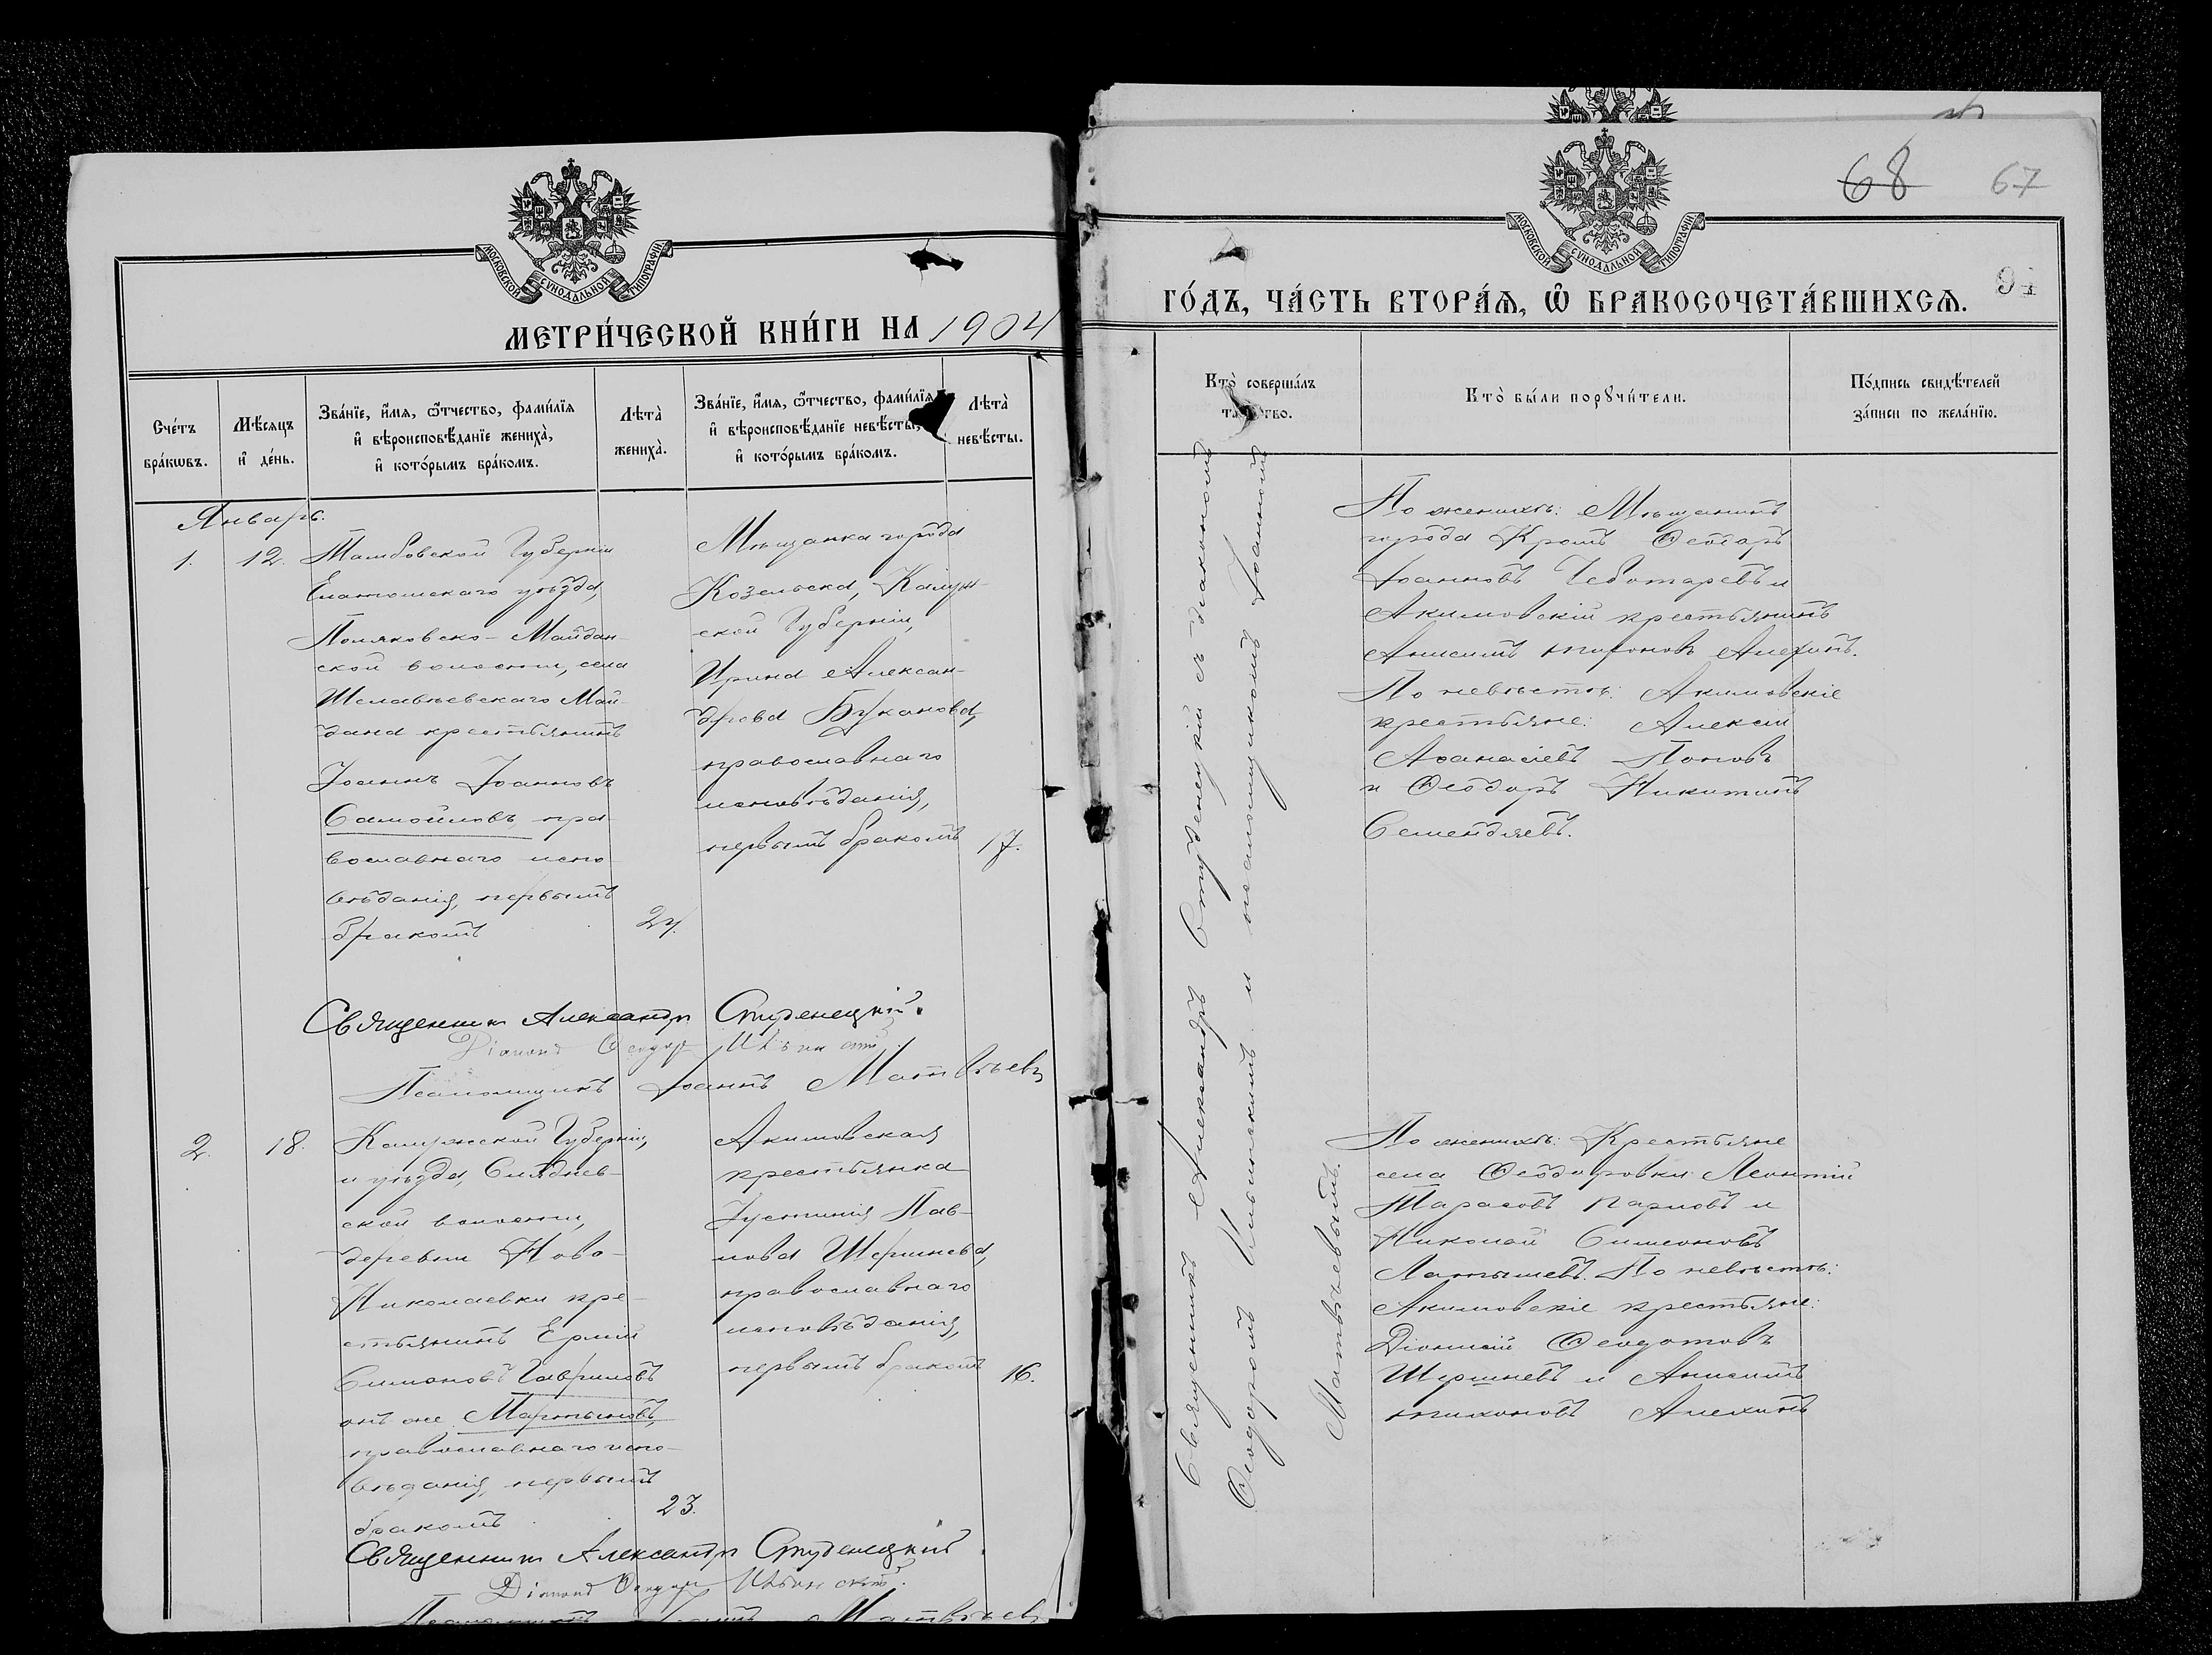 МОСКОВСКОЙ СѴНОДАЛЬНОЙ ТИПОГРАФІИ
МЕТРИ́ЧЕСКОЙ КНИ́ГИ НА 1904
Сче́тъ бра́кωвъ.
Мѣ́сяцъ и҆ де́нь.
Зва́нїе, и҆́мѧ, ѻ҆́тчество, фами́лїѧ
и҆ вѣроисповѣ́данїе жениха̀,
и҆ кото́рымъ бра́комъ.
Лѣта̀ жениха̀.
Зва́нїе, и҆́мѧ, ѻ҆́тчество, фами́лїѧ
и҆ вѣроисповѣ́данїе невѣ́сты,
и҆ кото́рымъ бра́комъ.
Лѣта̀ невѣ́сты.
Январь.
1.
12.
Тамбовской Губерніи
Елатомскаго уѣзда,
Поляковско-Майдан-
ской волости, села
Шелавѣевскаго Май-
дана крестьянинъ
Іоаннъ Іоанновъ
Самойловъ, пра-
вославнаго испо-
вѣданія, первымъ
бракомъ
24.
Мѣщанка города
Козельска, Калуж-
ской Губерніи,
Ирина Алексан-
дрова Буканова,
православнаго
исповѣданія,
первымъ бракомъ
17.
Священникъ Александръ Студенецкій.
Діаконъ Ѳеодоръ Ильинскій
Псаломщикъ Іоаннъ Матвѣевъ
2.
18.
Калужской Губерніи,
и уѣзда, Сляднев-
ской волости,
деревни Ново-
Николаевки кре-
стьянинъ Ермій
Симоновъ Гавриловъ
онъ же Мартыновъ,
православнаго испо-
вѣданія, первымъ
бракомъ
23.
Акимовская
крестьянка
Іустинія Пав-
лова Шершнева,
православнаго
исповѣданія,
первымъ бракомъ
16.
Священникъ Александръ Студенецкій.
Діаконъ Ѳеодоръ Ильинскій.
Псаломщикъ Іоаннъ Матвѣевъ
68 67
МОСКОВСКОЙ СѴНОДАЛЬНОЙ ТИПОГРАФІИ
94
ГО́ДЪ, ЧА́СТЬ ВТОРА́Я, Ѡ҆ БРАКОСОЧЕТА́ВШИХСѦ.
Кто̀ соверша́лъ
Кто̀ бы́ли порꙋчи́тели.
По́дпись свидѣ́телей
за́писи по жела́нїю.
Священникъ Александръ Студенецкій съ діакономъ
Ѳеодоромъ Ильинскимъ и псаломщикомъ Іоанномъ
Матвѣевымъ.
По женихѣ: Мѣщанинъ
города Кромъ
Іоанновъ Чеботаревъ и
Акимовскій крестьянинъ
Анисимъ Тихоновъ Алехинъ.
По невѣстѣ: Акимовскіе
крестьяне: Алексій
Аѳанасіевъ Поповъ
и Ѳеодоръ Никитинъ
Семендяевъ.
По женихѣ: Крестьяне
села Ѳеодоровки Леонтій
Тарасовъ Карповъ и
Николай Симеоновъ
Латышевъ. По невѣстѣ:
Акимовскіе крестьяне:
Діонисій Ѳеодотовъ
Шершневъ и Анисимъ
Тихоновъ Алехинъ